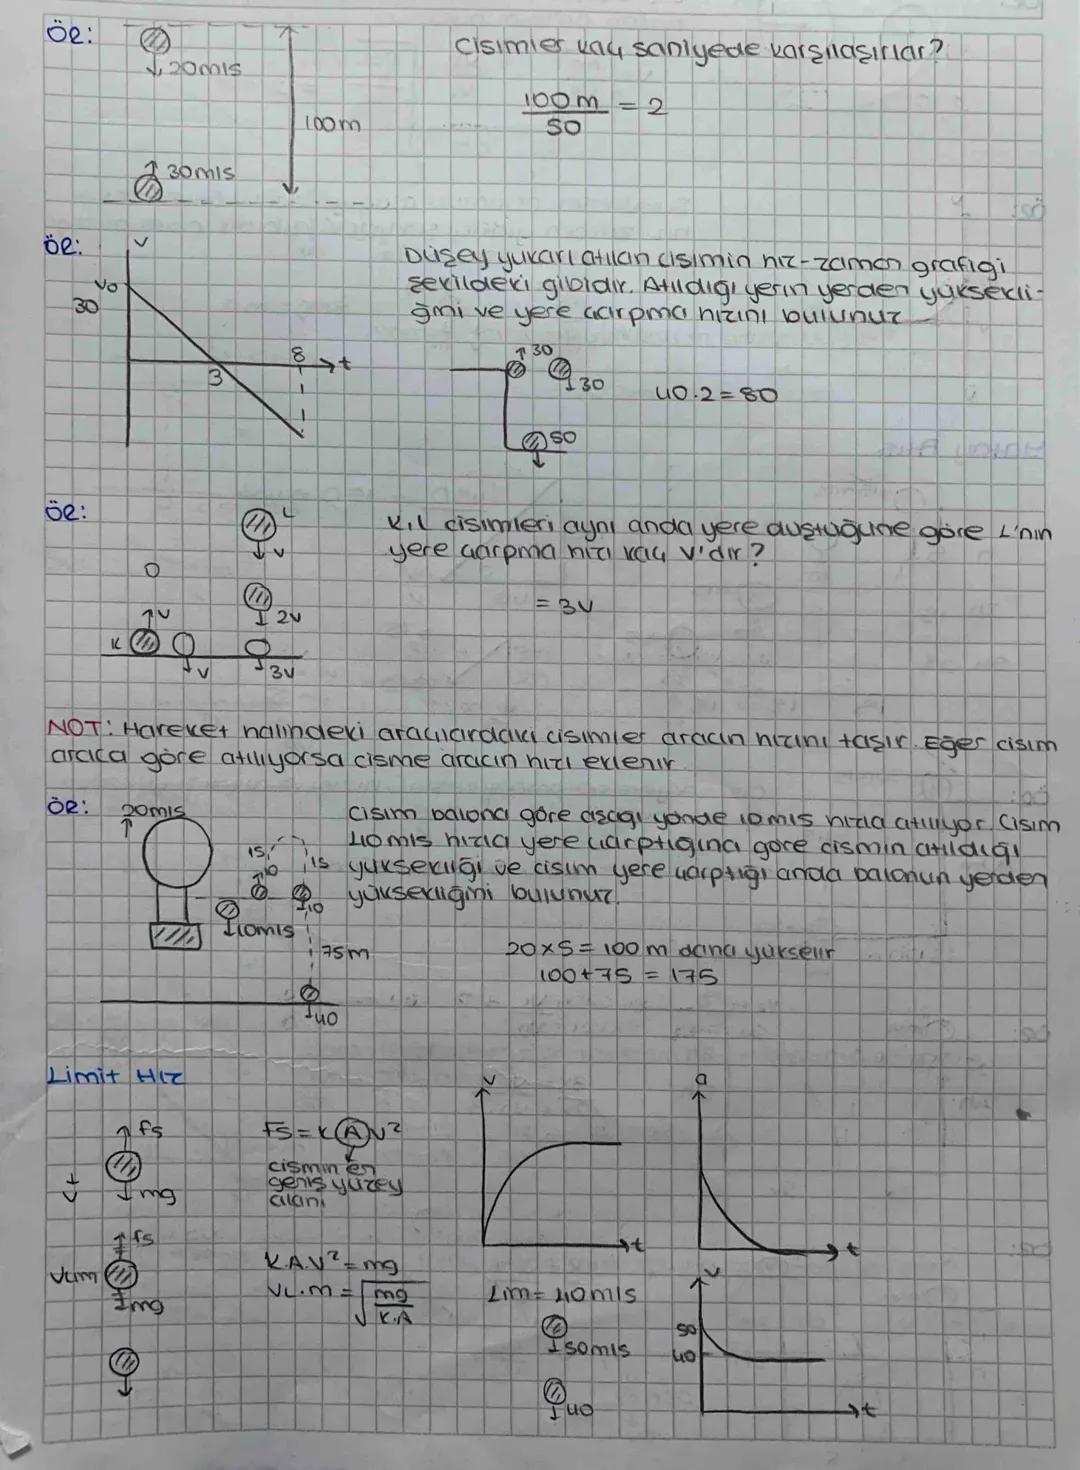 ÖR:
20m/s
100m
30m/s
Cisimler kaç saniyede karşılaşırlar?
100m = 2
50
ÖR:
V
V0
30
3
8
t
Düşey yukarı atılan cisimin hız-zaman grafiği
şekildeki gibidir. Atıldığı yerin yerden yüksekli-
ğini ve yere çarpma hızını bulunuz
30
30
50
40.2=80
ÖR:
L
V
2V
3V
K
V
V
K,L cisimleri aynı anda yere düştüğüne göre L'nin
yere çarpma hızı kaç V'dir?
= 3V
NOT: Hareket halindeki araçlardaki cisimler aracın hızını taşır. Eğer cisim
araca göre atılıyorsa cisme aracın hızı eklenir
ÖR:
20m/s
15
10
15
10
10m/s
75m
40
Cisim balona göre aşağı yönde 10m/s hızla atılıyor. Cisim
40m/s hızla yere çarptığına göre cismin atıldığı
yüksekliği ve cisim yere çarptığı anda balonun yerden
yüksekliğini bulunuz.
20x5=100m daha yükselir
100+75 = 175
Limit Hız
fs
mg
+
Fs=K(A)V²
cismin en
geniş yüzey
alanı
fs
Vlim
mg
K.A.V²=mg
VL.m = √mg
K.A
V
t
a
t
Lim= 40m/s
50m/s
40
V
50
40
t